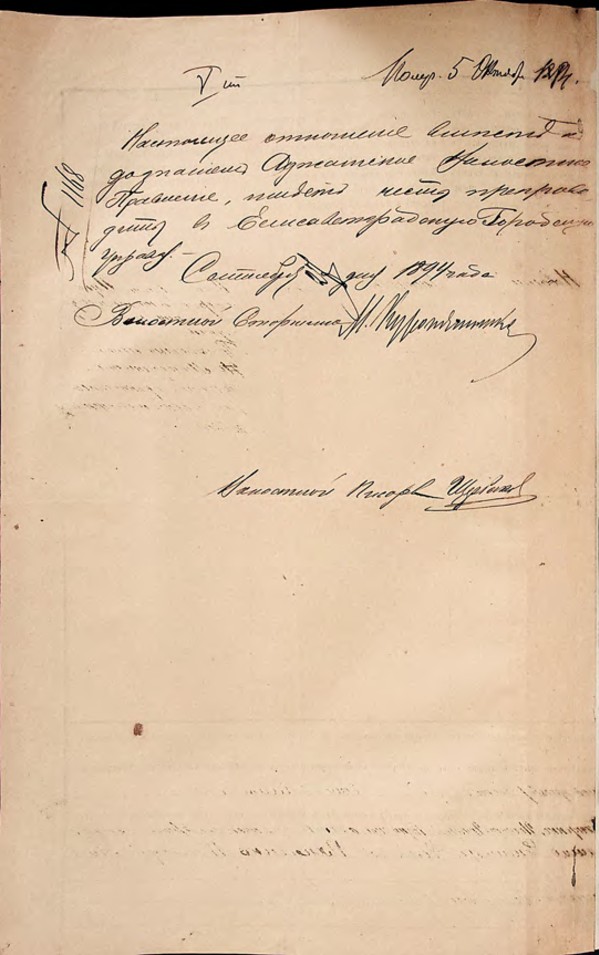 V ст
Получ. 5 Октяб. 1894.
№ 1168
Настоящее отношение вместе с
дознанием Аджамское Волостное
Правление, имеет честь препрово
дить в Елисаветградскую Городскую
управу.
Сентября дня 1894 года
Волостной Старшина
Волостной Писарь